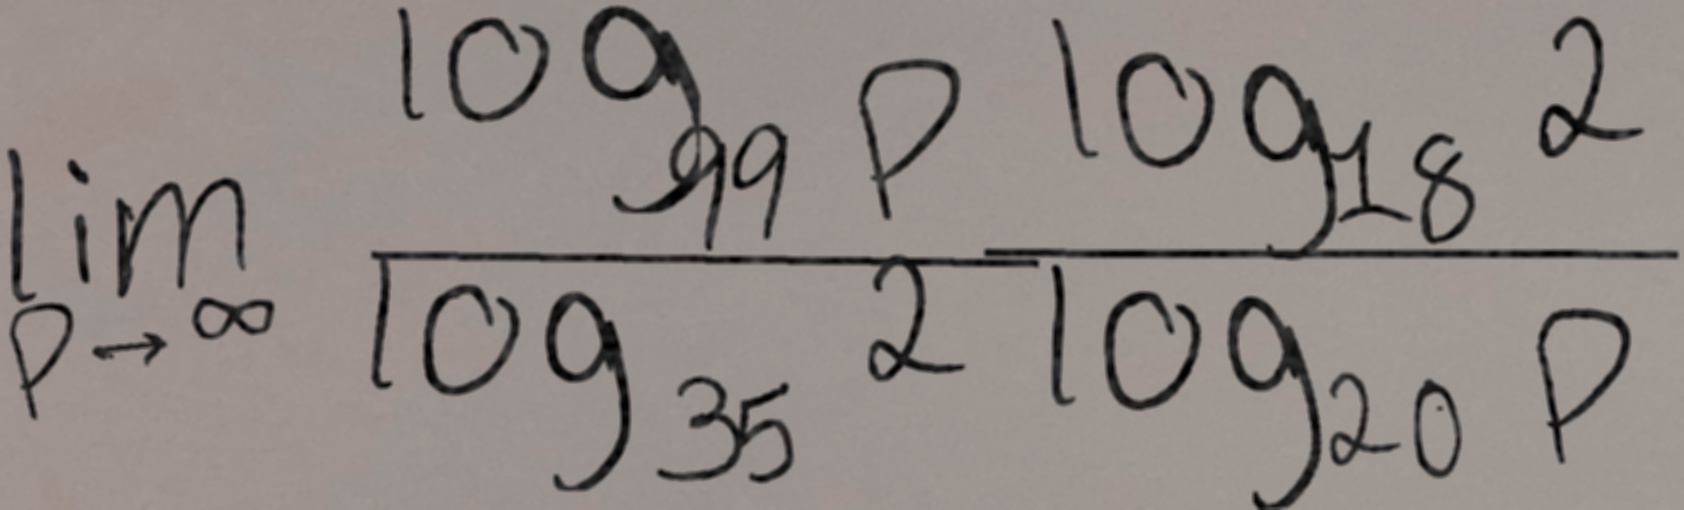 \lim_{p \to \infty} \frac{\log_{99} p}{\log_{35} 2} \frac{\log_{18} 2}{\log_{20} p}